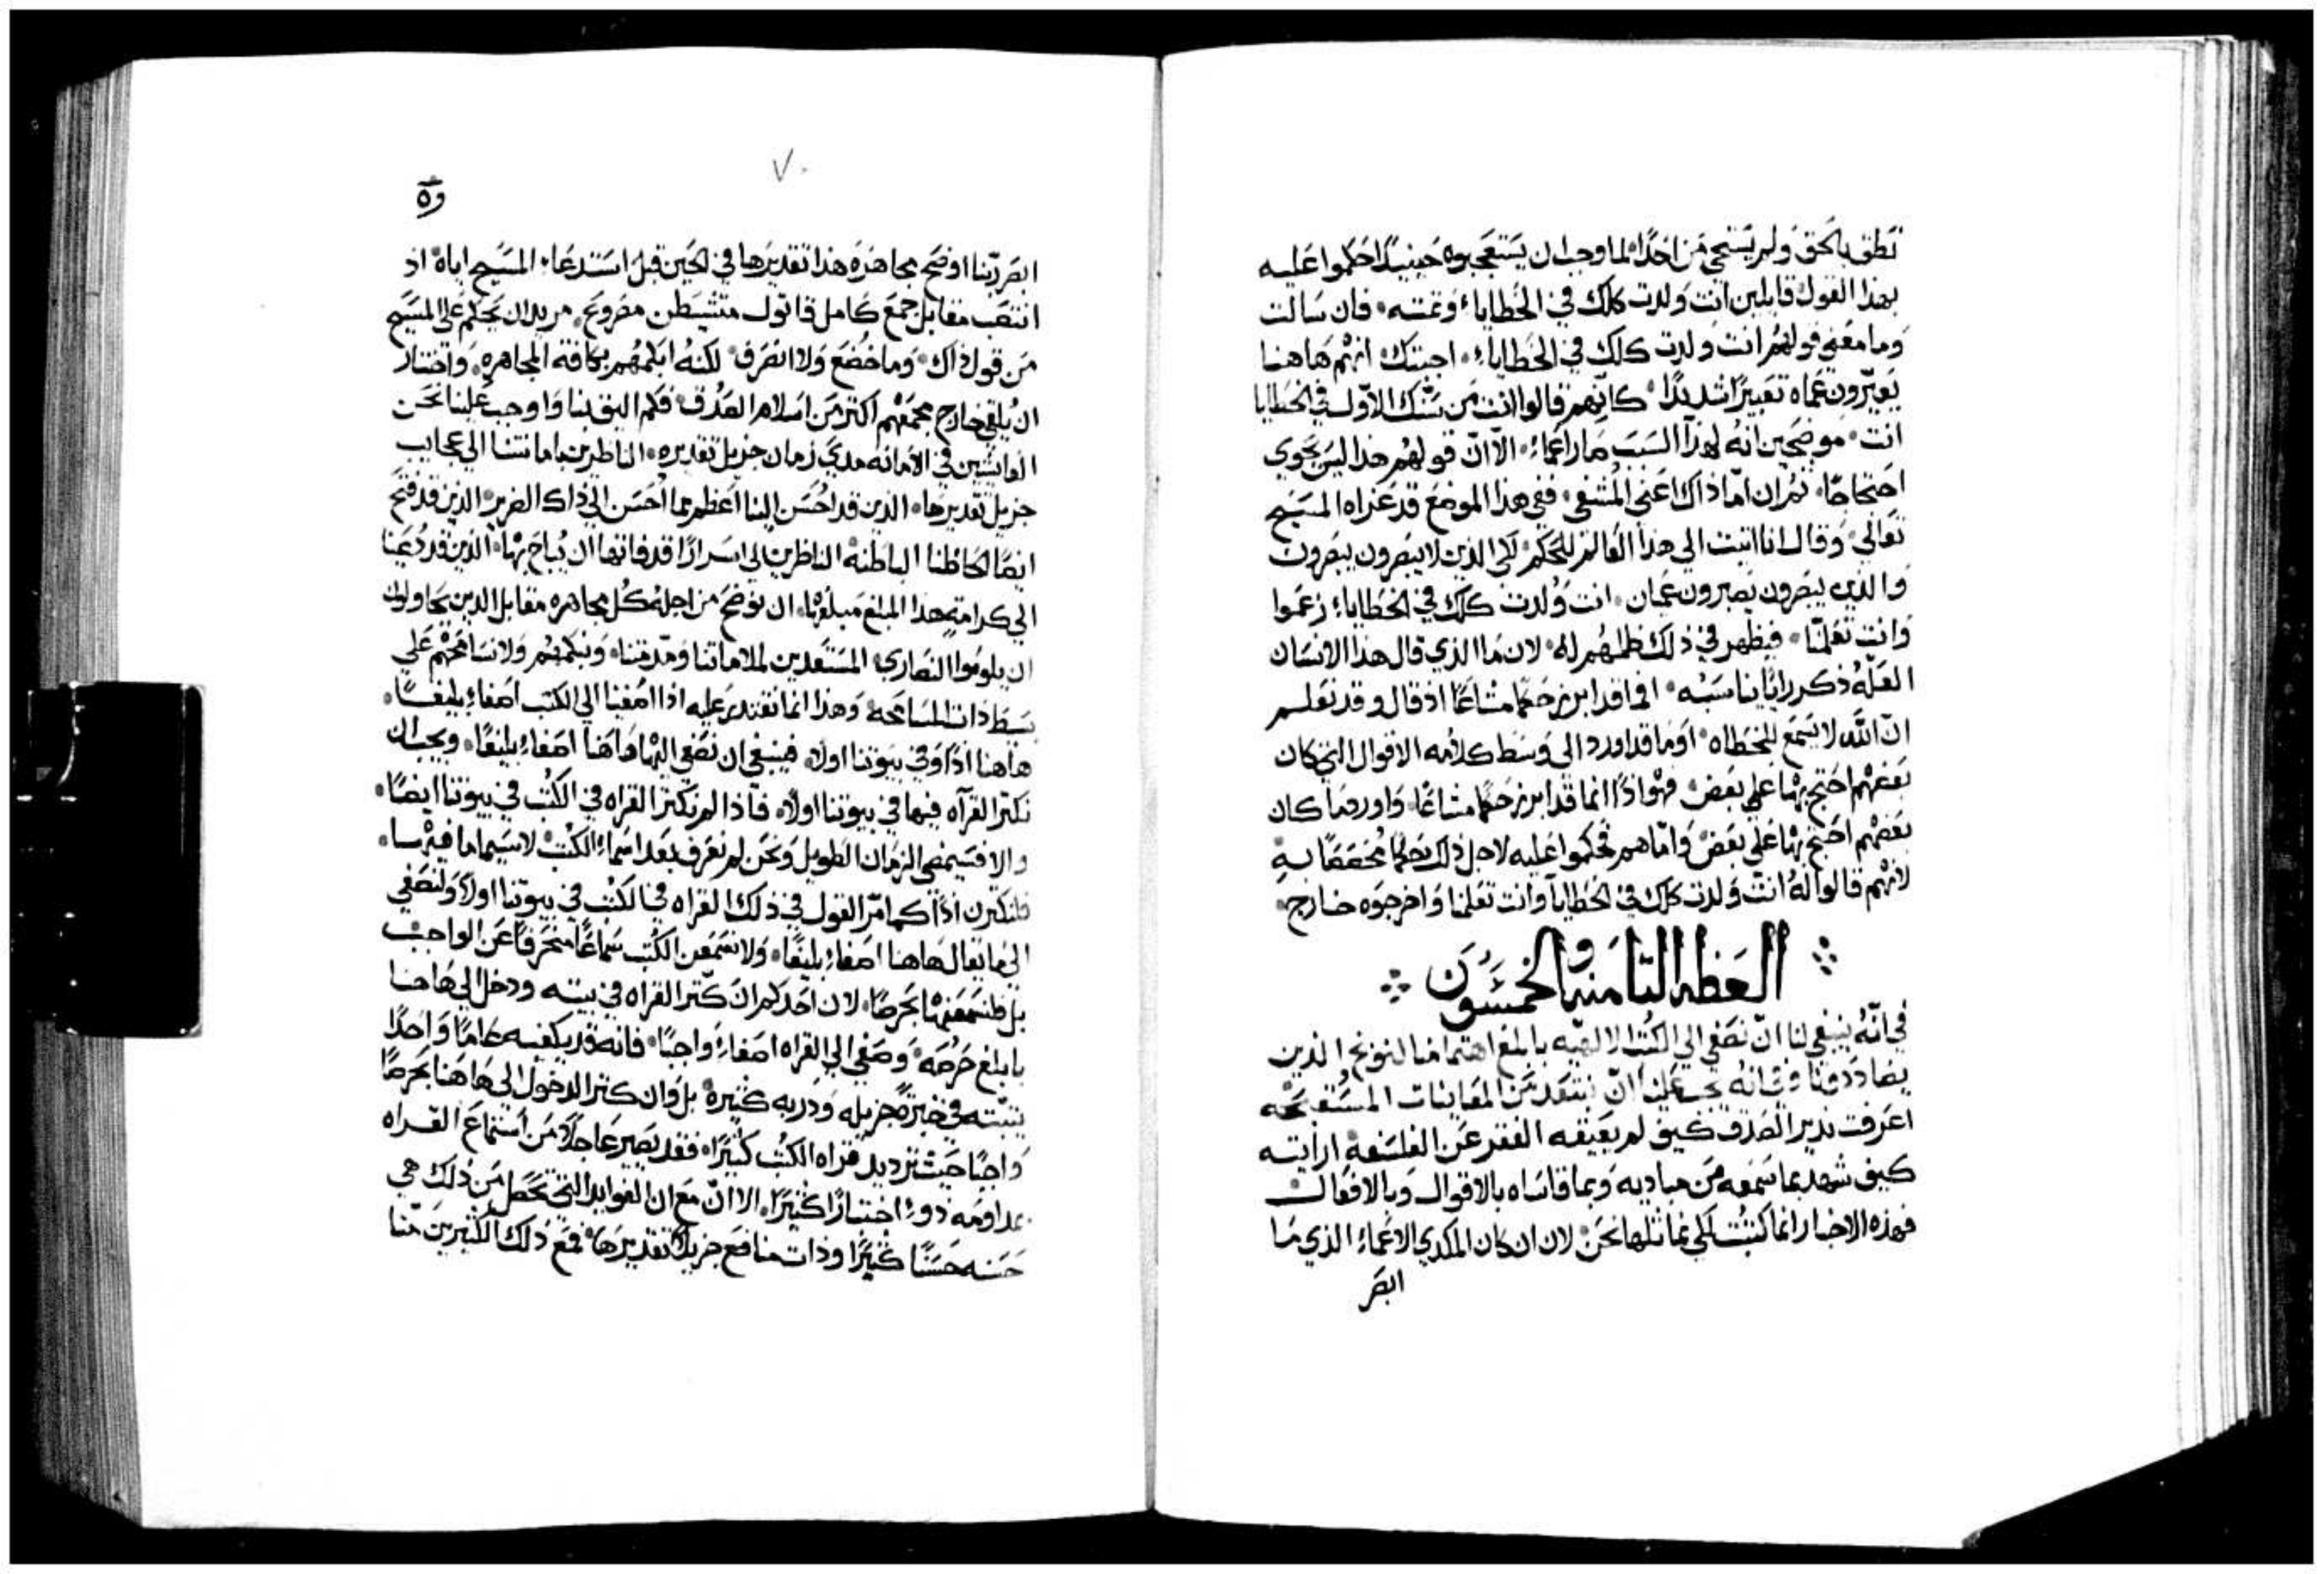 نطق بالحق ولم يستحي من احدًا لما وجب ان يستعجبوه حينيذًا حكموا عليه
بهذا القول قايلين انت ولدت كلك في الخطاياء وتمته فان سالت
وما معني قولهم انت ولدت كلك في الخطاياء اجبتك انهم هاهنا
يعيّرون عماه تعييرًا شديدًا كانهم قالوا انت من سنك الاول في الخطايا
انت موضحين انه لهذا السبب صار اعماء الا ان قولهم هذا ليس يحوي
احتجاجًا ثم ان اما ذاك اعني المشفي ففي هذا الموضع قد عزاه المسيح
تعالي وقال انا اتيت الي هذا العالم للحكم لكي الذين لا يبصرون يبصرون
والذين يبصرون يصيرون عميان انت ولدت كلك في الخطاياء زعموا
وانت تعلمنا فيظهر في ذلك ظلمهم له لان ما الذي قال هذا الانسان
العلّه ذكر رايًا يناسبه افما قد ابرز حكمًا مشاعًا اذ قال وقد نعلم
ان الله لا يسمع للخطاه اوما قد اورد الي وسط كلامه الاقوال التي كان
بعضهم احتج بها علي بعض فهو اذًا انما قد ابرز حكمًا مشاعًا واورد ما كان
بعضهم احتج بها علي بعض واما هم فحكموا عليه لاجل ذلك حكمًا محققًا به
لانهم قالوا له انت ولدت كلك في الخطايا وانت تعلمنا واخرجوه خارج
العظه الثامنه والخمسون
في انه ينبغي لنا ان نصغي الي الكتب الالهيه بابلغ اهتمامنا لنوبخ الذين
يضاددونا وفي انه يجب علينا ان نبتعد من المعاينات المستقبحه
اعرفت نذير الصدق كيف لم يعيقه الفقر عن الفلسفه ارايته
كيف شهد بما سمعه من مباديه وبما قاساه بالاقوال وبالافعال
فهذه الاخبار انما كتبت لكي نماثلها نحن لان ان كان المكدي الاعماء الذي ما
ابصر
٧٠
وه
ابصر ربنا اوضح مجاهره هذا تقديرها في الحين قبل استدعاء المسيح اياه اذ
انتصب مقابل جمع كامل قاتول متشيطن مصروع مريدان يحكم علي المسيح
من قول ذاك وما خضع ولا انصرف لكنه ابكمهم بكافة المجاهره واختار
ان يلقي خارج مجمعهم اكثر من اسلام الصدق فكم اليق بنا واوجب علينا نحن
العايشين في الامانه مدي زمان جزيل تقديره الناظرين بامانتنا الي عجايب
جزيل تقديرها الذين قد احسن الينا اعظم مما احسن الي ذاك الضرير الذين قد فتح
ايضًا لحاظنا الباطنة الناظرين الي اسرارًا قد فاتها ان يباح بها الذين قد دعينا
الي كرامة هذا المبلغ مبلغها ان نوضح من اجله كل مجاهره مقابل الذين يحاولون
ان يلوموا النصاري المستعدين لملاماتنا ومذمتنا ونبكمهم ولا نسامحهم علي
بسيط ذات المسامحه وهذا انما نقتدر عليه اذا اصغينا الي الكتب اصغاء بليغًا
هاهنا اذًا وفي بيوتنا اولًا فينبغي ان نصغي اليها هاهنا اصغاء بليغًا ويجب ان
نكثر القرآه فيها في بيوتنا اولًا فاذا لم نكثر القراه في الكتب في بيوتنا ايضًا
والا فسيمضي الزمان الطويل ونحن لم نعرف بعد اسماء الكتب لا سيما ما فيها
فلنكثرن اذًا كما امر القول في ذلك القراه في الكتب في بيوتنا اولًا ولنصغي
الي ما يقال هاهنا اصغاء بليغًا ولا نسمعن الكتب سماعًا منحرفًا عن الواجب
بل فلنسمعنها بحرصًا لان احدكم ان كثر القراه في بيته ودخل الي هاهنا
بابلغ حرصه وصغي الي القراه اصغاء واجبًا فانه قد يكفيه عامًا واحدًا
يثبته في خبرة جزيله ودربه كثيرة بل وان كثر الدخول الي هاهنا بحرصًا
واجبًا حيث تزديد قراه الكتب كثيرًا فقد يصير عاجلًا من استماع القراه
بمداومه ذو اختبارًا كثيرًا الا ان مع ان الفوايد التي تحصل من ذلك هي
حسنه حسنًا كثيرًا وذات منافع جزيلًا تقديرها فمع ذلك الكثيرين منا